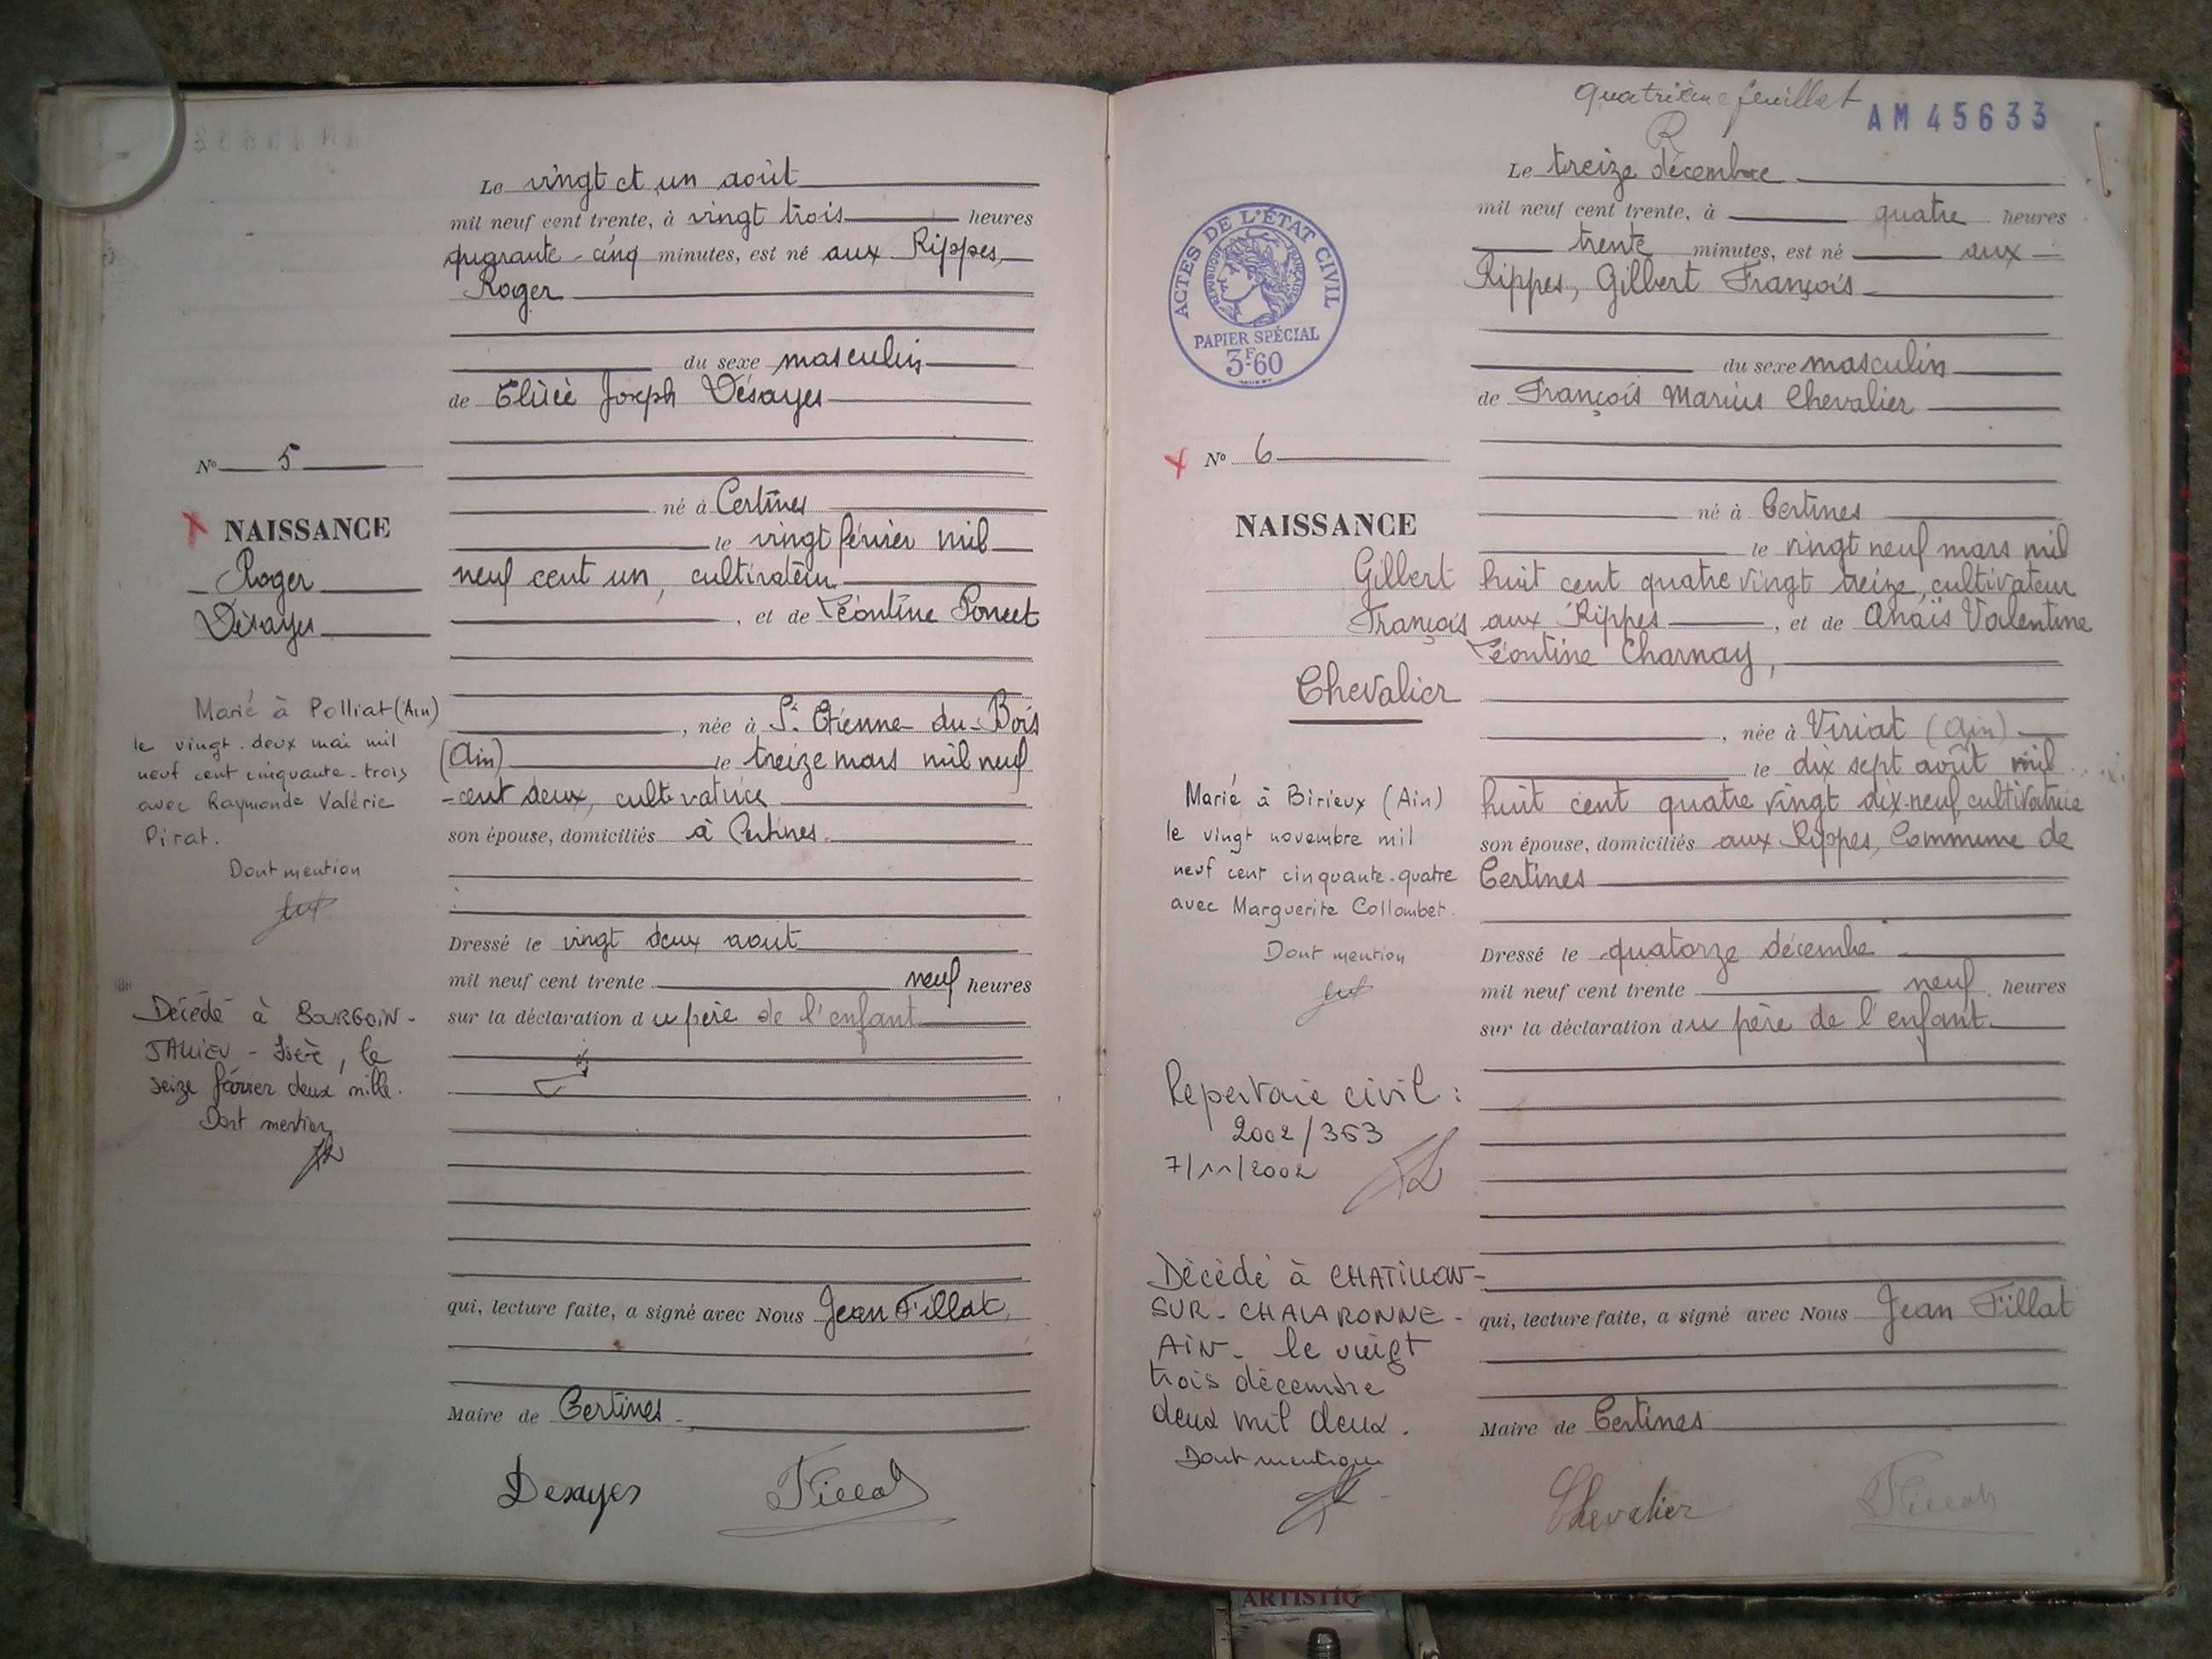 Le vingt et un août
mil neuf cent trente, à vingt trois heures
quarante-cinq minutes, est né aux Rippes,
Roger
du sexe masculin
de Elisée Joseph Désayes
né à Certines
le vingt février mil
neuf cent un, cultivateur
, et de Léontine Poncet
, née à St. Etienne-du-Bois
(Ain) le treize mars mil neuf
-cent deux, cultivatrice
son épouse, domiciliés à Certines.
Dressé le vingt deux aout
mil neuf cent trente neuf heures
sur la déclaration du père de l'enfant
qui, lecture faite, a signé avec Nous Jean Fillat,
Maire de Certines.
Desayes Fillat
No 5
X NAISSANCE
Roger
Désayes
Marié à Polliat (Ain)
le vingt-deux mai mil
neuf cent cinquante-trois
avec Raymonde Valérie
Pirat.
Dont mention
Décédé à BOURGOIN-
JALLIEU - Isère, le
seize février deux mille.
Dont mention
quatrième feuillet
AM 45633
R
Le treize décembre
mil neuf cent trente, à quatre heures
trente minutes, est né aux
Rippes, Gilbert François
du sexe masculin
de François Marius Chevalier
né à Certines
le vingt neuf mars mil
huit cent quatre vingt treize, cultivateur
aux Rippes, et de Anaïs Valentine
Léontine Charnay,
, née à Viriat (Ain)
le dix sept août mil
huit cent quatre vingt dix-neuf, cultivatrice
son épouse, domiciliés aux Rippes, Commune de
Certines
Dressé le quatorze décembre
mil neuf cent trente neuf heures
sur la déclaration du père de l'enfant.
qui, lecture faite, a signé avec Nous Jean Fillat
Maire de Certines
Chevalier Fillat
ACTES DE L'ÉTAT CIVIL
RÉPUBLIQUE FRANÇAISE
PAPIER SPÉCIAL
3F60
X No 6
NAISSANCE
Gilbert
François
Chevalier
Marié à Birieux (Ain)
le vingt novembre mil
neuf cent cinquante-quatre
avec Marguerite Collombet.
Dont mention
Repertoire civil :
2002/363
7/11/2002
Décédé à CHATILLON-
SUR-CHALARONNE -
AIN - le vingt
trois décembre
deux mil deux.
Dont mention
ARTISTIQ